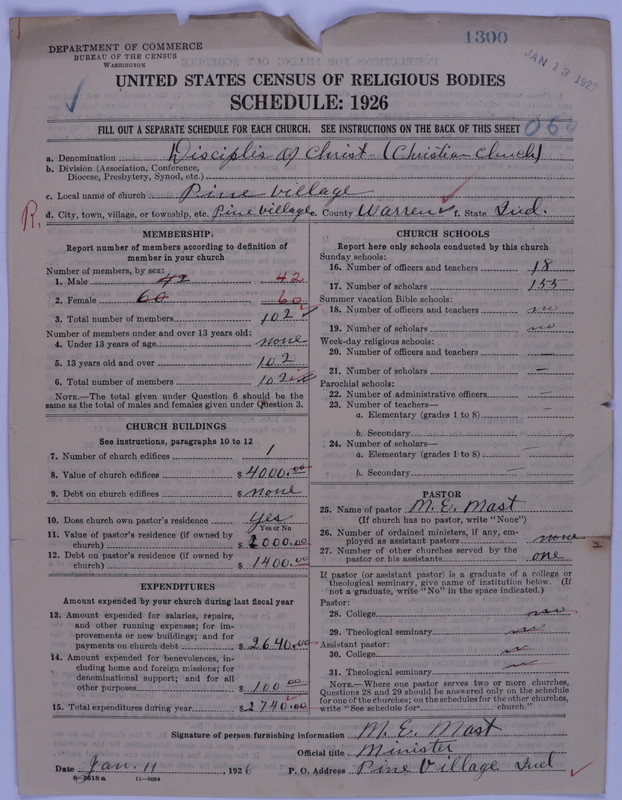 1300
JAN 13 1927
DEPARTMENT OF COMMERCE
BUREAU OF THE CENSUS
WASHINGTON
UNITED STATES CENSUS OF RELIGIOUS BODIES
SCHEDULE: 1926
FILL OUT A SEPARATE SCHEDULE FOR EACH CHURCH. SEE INSTRUCTIONS ON THE BACK OF THIS SHEET
a. Denomination Disciples of Christ - (Christian Church)
b. Division (Association, Conference,
Diocese, Presbytery, Synod, etc.)
c. Local name of church Pine Village
R. d. City, town, village, or township, etc. Pine Village e. County Warren f. State Ind.
MEMBERSHIP
Report number of members according to definition of
member in your church
Number of members, by sex:
1. Male 42 42
2. Female 60 60
3. Total number of members 102
Number of members under and over 13 years old:
4. Under 13 years of age none
5. 13 years old and over 102
6. Total number of members 102
NOTE.—The total given under Question 6 should be the
same as the total of males and females given under Question 3.
CHURCH BUILDINGS
See instructions, paragraphs 10 to 12
7. Number of church edifices 1
8. Value of church edifices $ 4000.00
9. Debt on church edifices $ none
10. Does church own pastor's residence Yes
Yes or No
11. Value of pastor's residence (if owned by
church) $ 2000.00
12. Debt on pastor's residence (if owned by
church) $ 1400.00
EXPENDITURES
Amount expended by your church during last fiscal year
13. Amount expended for salaries, repairs,
and other running expenses; for im-
provements or new buildings; and for
payments on church debt $ 2640.00
14. Amount expended for benevolences, in-
cluding home and foreign missions; for
denominational support; and for all
other purposes $ 100.00
15. Total expenditures during year $ 2740.00
CHURCH SCHOOLS
Report here only schools conducted by this church
Sunday schools:
16. Number of officers and teachers 18
17. Number of scholars 155
Summer vacation Bible schools:
18. Number of officers and teachers no
19. Number of scholars no
Week-day religious schools:
20. Number of officers and teachers —
21. Number of scholars —
Parochial schools:
22. Number of administrative officers —
23. Number of teachers—
a. Elementary (grades 1 to 8) —
b. Secondary —
24. Number of scholars—
a. Elementary (grades 1 to 8) —
b. Secondary —
PASTOR
25. Name of pastor M. E. Mast
(If church has no pastor, write "None")
26. Number of ordained ministers, if any, em-
ployed as assistant pastors none
27. Number of other churches served by the
pastor or his assistants one
If pastor (or assistant pastor) is a graduate of a college or
theological seminary, give name of institution below. (If
not a graduate, write "No" in the space indicated.)
Pastor:
28. College no
29. Theological seminary no
Assistant pastor:
30. College no
31. Theological seminary no
NOTE.—Where one pastor serves two or more churches,
Questions 28 and 29 should be answered only on the schedule
for one of the churches; on the schedules for the other churches,
write "See schedule for church."
Signature of person furnishing information M. E. Mast
Official title Minister
Date Jan. 11, 1926 P. O. Address Pine Village Ind
11—9054